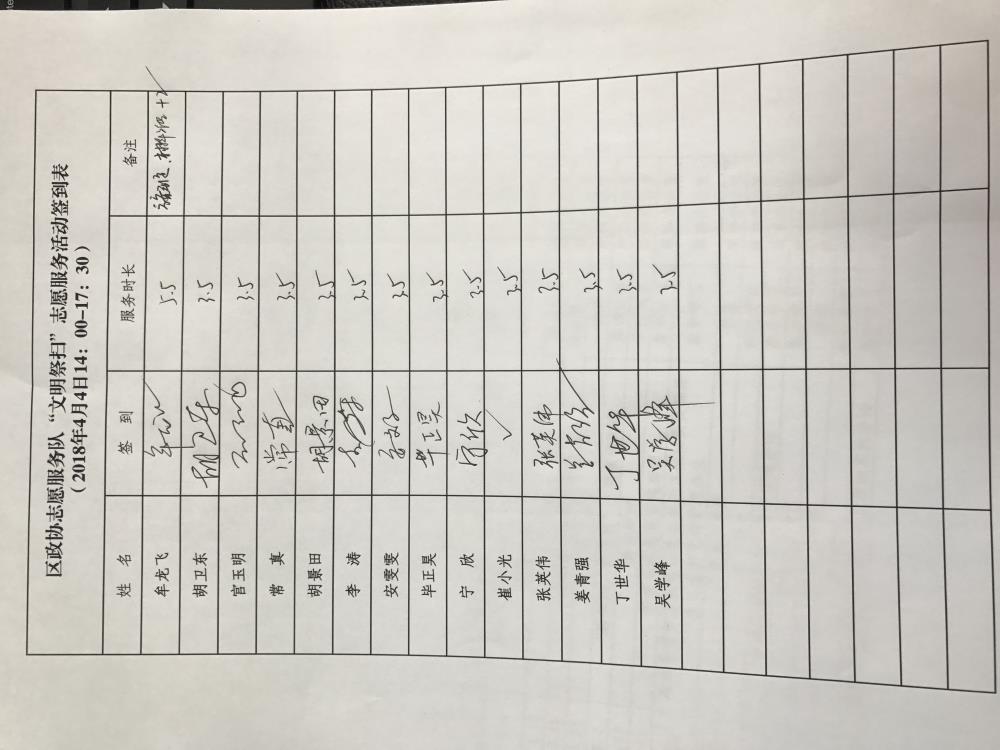 区政协志愿服务队“文明祭扫”志愿服务活动签到表
（2018年4月4日14：00-17：30）
姓 名 签 到 服务时长 备注
牟龙飞 5.5 +2
胡卫东 胡卫东 3.5
官玉明 3.5
常 真 常真 3.5
胡景田 胡景田 3.5
李 涛 3.5
安雯雯 3.5
毕正昊 毕正昊 3.5
宁 欣 宁欣 3.5
崔小光 ✓ 3.5
张英伟 张英伟 3.5
姜青强 3.5
丁世华 丁世华 3.5
吴学峰 3.5